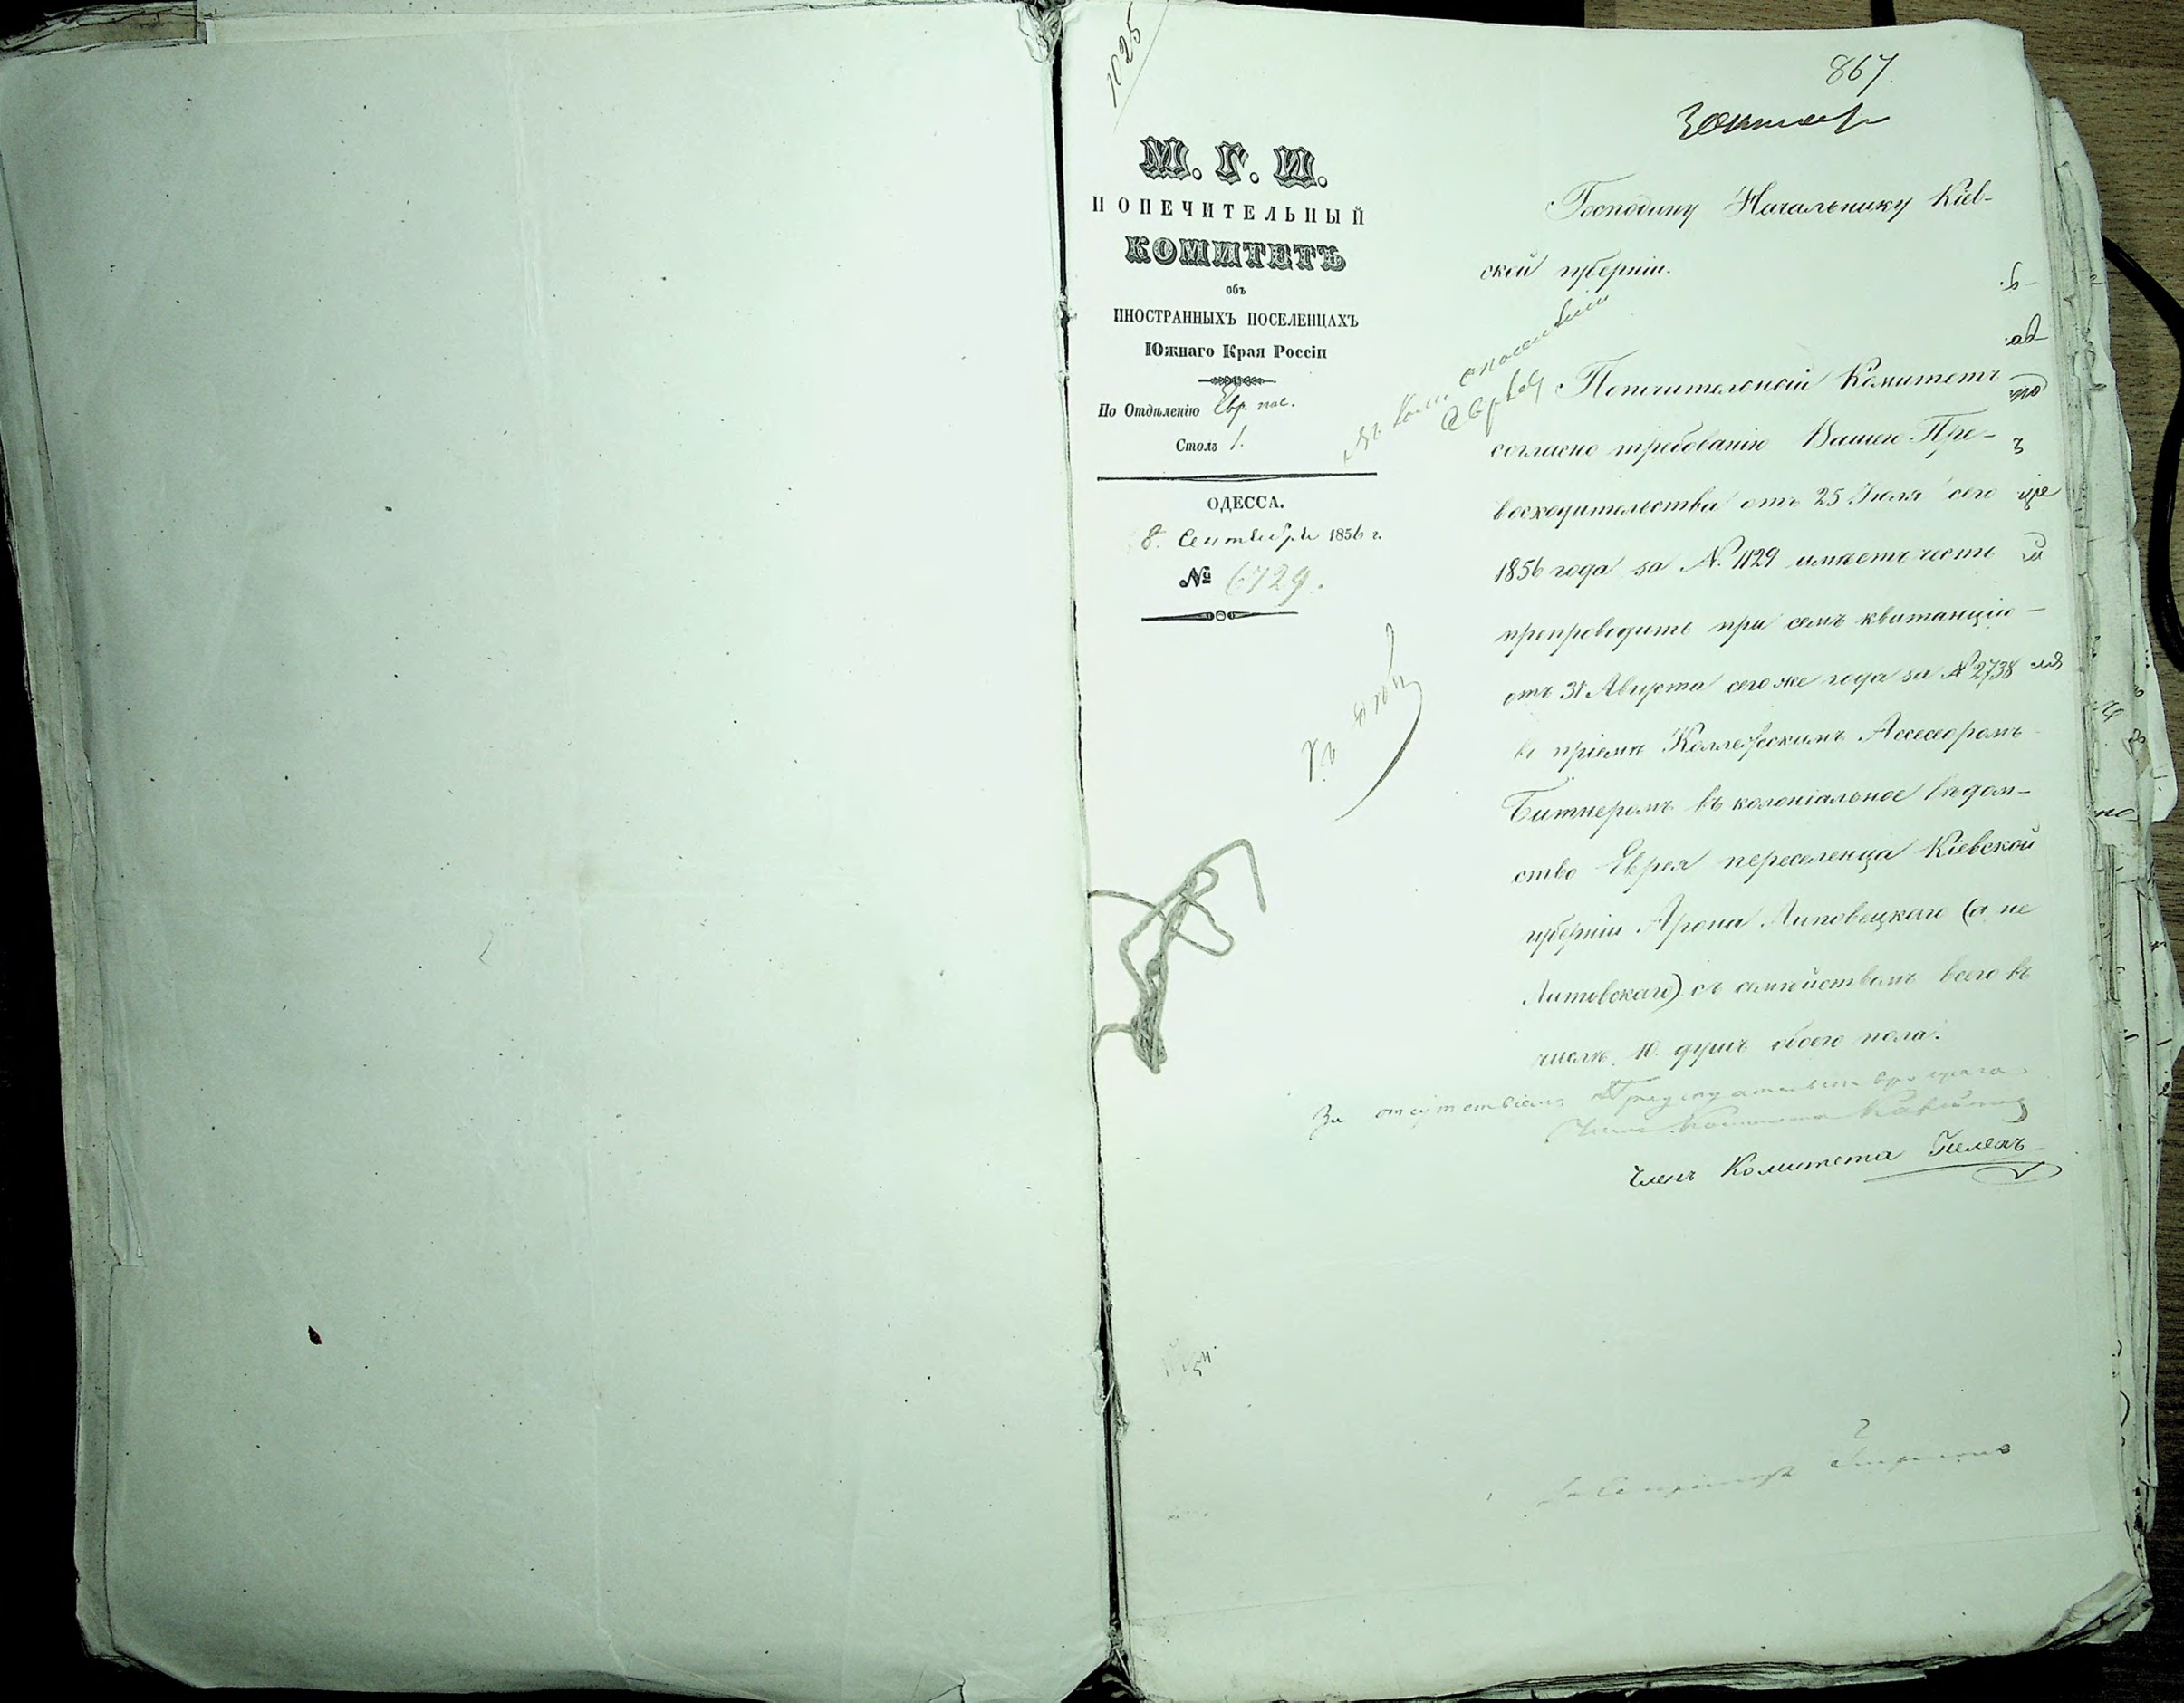 1025
867.
3 Октяб
М. Г. И.
ПОПЕЧИТЕЛЬНЫЙ
КОМИТЕТЪ
объ
ИНОСТРАННЫХЪ ПОСЕЛЕНЦАХЪ
Южнаго Края Россіи
По Отдѣленію Евр. пос.
Столъ 1.
ОДЕССА.
8 Сентября 1856 г.
№ 6729.
Господину Начальнику Кіев-
ской губерніи.
Попечительный Комитетъ
согласно требованію Вашего Пре-
восходительства отъ 25 Іюля сего
1856 года за N. 1129 имѣетъ честь
препроводить при семъ квитанцію
отъ 31 Августа сего же года за N 2738
въ пріемѣ Коллежскимъ Ассесоромъ
Битнеромъ въ колоніальное вѣдом-
ство Еврея переселенца Кіевской
губерніи Арона Липовецкаго (а не
Литовскаго) съ семействомъ всего въ
числѣ 10. душъ обоего пола.
За отсутствіемъ Предсѣдательствующаго
Членъ Комитета
Членъ Комитета